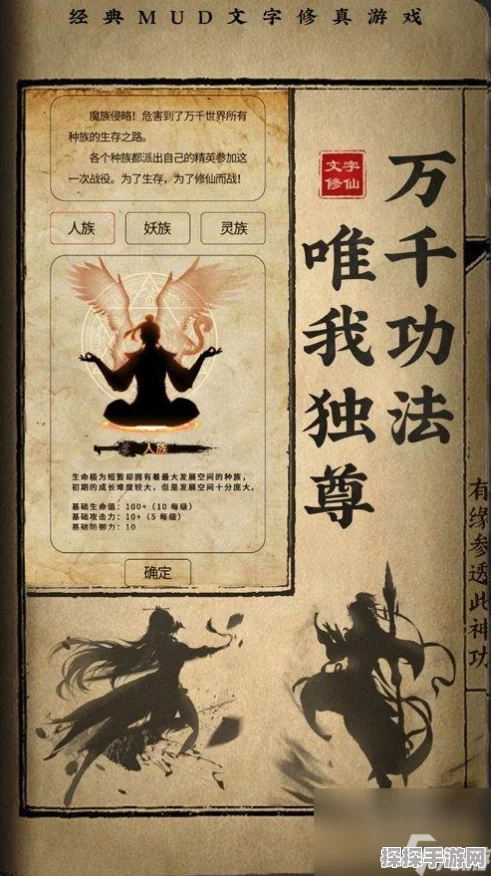 经典MUD文字修真游戏
魔族侵略！危害到了万千世界所有
种族的生存之路。
各个种族都派出自己的精英参加这
一次战役。为了生存，为了修仙而战！
人族
妖族
灵族
人族
生命极为短暂却拥有着最大发展空间的种族，
初期的成长难度较大，但是发展空间十分庞大。
基础生命值：100+（10 每级）
基础攻击力：10+（5 每级）
基础防御力：10
确定
文字
修仙
万千功法
唯我独尊
有缘参透此神功
探探手游网